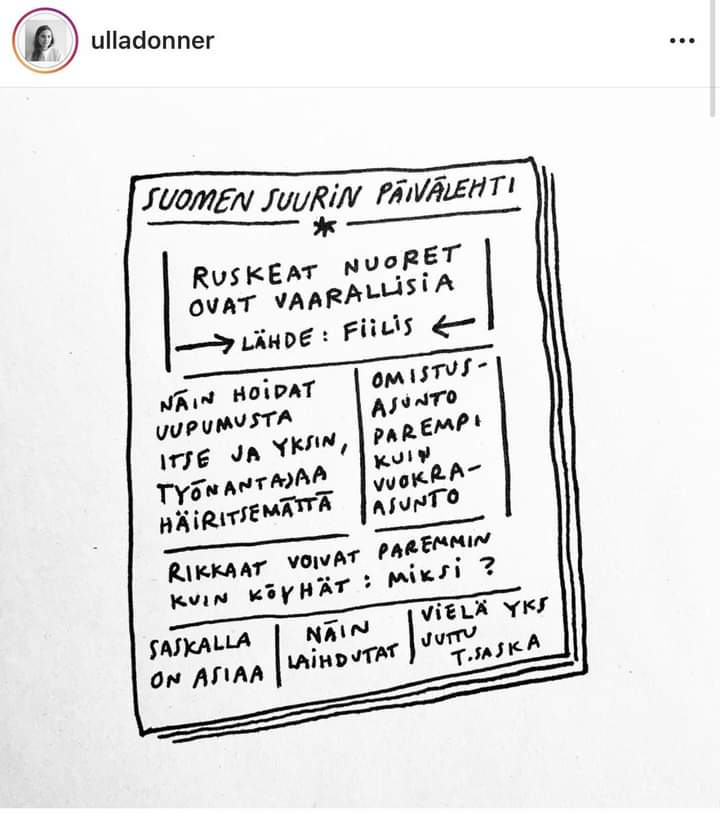 ulladonner
SUOMEN SUURIN PÄIVÄLEHTI
RUSKEAT NUORET
OVAT VAARALLISIA
→ LÄHDE: FIILIS ←
NÄIN HOIDAT
UUPUMUSTA
ITSE JA YKSIN,
TYÖNANTAJAA
HÄIRITSEMÄTTÄ
OMISTUS-
ASUNTO
PAREMPI
KUIN
VUOKRA-
ASUNTO
RIKKAAT VOIVAT PAREMMIN
KUIN KÖYHÄT: MIKSI?
SASKALLA
ON ASIAA
NÄIN
LAIHDUTAT
VIELÄ YKS
JUTTU
T.SASKA